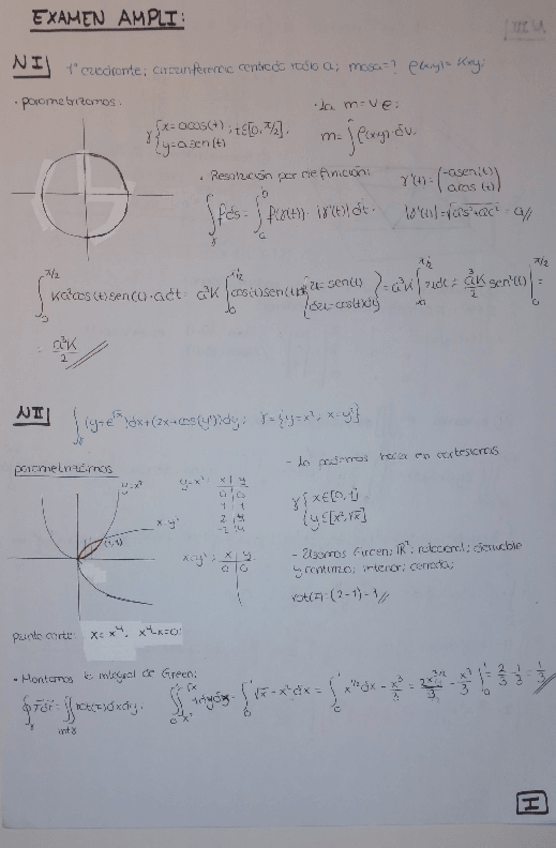 EXAMEN AMPLI:
NI| 1º cuadrante; circunferencia centrada radio a; masa=? ρ(x,y)= Kxy.
· parametrizamos:
γ { x=acos(t); t∈[0, π/2].
{ y=asen(t)
· La m=v·ρ:
m=∫ρ(x,y)·dv.
· Resolución por definición:
∫γ f ds = ∫ₐᵇ f(γ(t))·|γ'(t)| dt.
γ'(t)= (-asen(t)
acos(t))
|γ'(t)|=√a²s²+a²c² = a//
∫₀^π/2 Ka²cos(t)sen(t)·adt = a³K ∫₀^π/2 cos(t)sen(t)dt {u=sen(t) du=cos(t)dt} = a³K ∫ udu = a³K/2 sen²(t) |₀^π/2 =
= a³K/2 //
NII| ∫γ (y+e^√x)dx+(2x+cos(y²))dy; γ={y=x², x=y²}
parametrizamos
y=x²
x=y²
(1,1)
y=x²: x | y
0 | 0
1 | 1
2 | 4
-2 | 4
x=y²: x | y
0 | 0
- La podemos hacer en cartesianas
γ { x∈[0,1]
{ y∈[x²,√x]
- Usamos Green; ℝ²; rotacional; derivable
y continuo; interior; cerrada;
rot(F)=(2-1)=1//
punto corte: x=x⁴, x⁴-x=0;
· Montamos la integral de Green;
∮γ F dr = ∬int γ rot(F)dxdy.
∫₀¹∫x²^√x 1dydx = ∫₀¹ √x - x² dx = ∫₀¹ x^1/2 dx - x³/3 = 2x^3/2/3 - x³/3 |₀¹ = 2/3 - 1/3 = 1/3 //
I